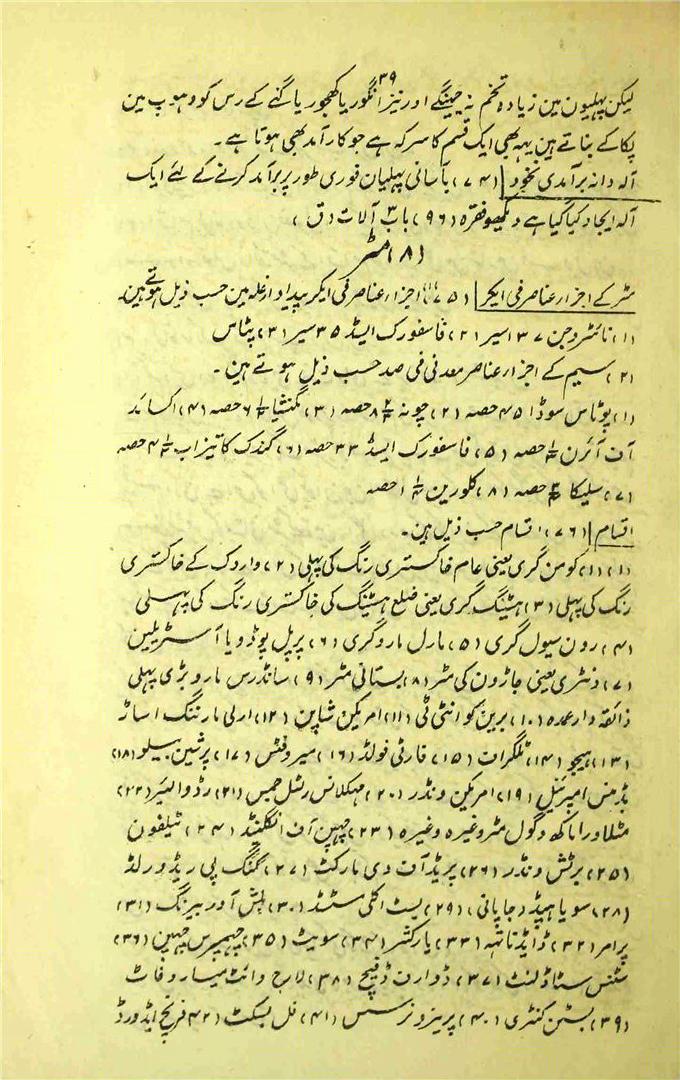 ۳۹
لیکن پھلیون مین زیادہ تخم نہ چینگے اور نیز انگور یا کھجور یا گنے کے رس کو دھوپ مین
پکا کے بناتے ہین یہہ بھی ایک قسم کا سرکہ ہے جو کارآمد بھی ہوتا ہے۔
آلہ دانہ برآمدی نخود (۷۴) بآسانی پھلیان فوری طور پر برآمد کرنے کے لئے ایک
آلہ ایجاد کیا گیا ہے دیکھو فقرہ (۹۶) باب ۳ آلات (ق)
(۸) مٹر
مٹر کے اجزار عناصر فی ایکر (۷۵) اجزار عناصر فی ایکر پیداوار غلہ مین حسب ذیل ہوتے ہین۔
(۱) نائٹروجن ۳۷ سیر (۲) فاسفورک ایسڈ ۳۵ سیر (۳) پٹاس
(۲) سیم کے اجزار عناصر معدنی فی صد حسب ذیل ہوتے ہین۔
(۱) پوٹاس سوڈا ۴۵ حصہ (۲) چونہ ۸ حصہ (۳) مگنشیا ۶ حصہ (۴) اکسائڈ
آف آئرن حصہ (۵) فاسفورک ایسڈ ۳۳ حصہ (۶) گندک کا تیزاب ۴ حصہ
(۷) سلیکا حصہ (۸) کلورین ۱ حصہ
اقسام (۷۶) اقسام حسب ذیل ہین۔
(۱) (۱) کومن گری یعنی عام خاکستری رنگ کی پھلی (۲) واردک کے خاکستری
رنگ کی پھلی (۳) ہیٹنگ گری یعنی ضلع ہیٹنگ کی خاکستری رنگ کی پھلی
(۴) رون سیول گری (۵) مارل مارو گری (۶) پرپل پوڈ ویا آسٹریلین
(۷) ونٹری یعنی جاڑون کی مٹر (۸) بستانی مٹر (۹) سانڈرس مارو بڑی پھلی
ذائقہ وار عمدہ (۱۰) برین کوانٹی ٹی (۱۱) امریکن شاپین (۱۲) ارلی مارننگ اسٹار
(۱۳) ہیجو (۱۴) ٹلگراف (۱۵) فارٹی فولڈ (۱۶) سیروفٹس (۱۷) پرشین بیلو (۱۸)
بڈمنس امپرئیل (۱۹) امریکن ونڈر (۲۰) مہکلانس رشل جیس (۲۱) رڈوالئیر (۲۲)
مثلا ورا ماکھ وگول مٹر وغیرہ وغیرہ (۲۳) چمپن آف انگلینڈ (۲۴) ٹیلفون
(۲۵) برٹش ونڈر (۲۶) پریڈ آف دی مارکٹ (۲۷) گنگ پی ریڈ ورلڈ
(۲۸) سویا ہیپڈ (جاپانی) (۲۹) بسٹ اکلی مسٹڈ (۳۰) بلش آور بیرنگ (۳۱)
پرامر (۳۲) ڈایڈ تاتہہ (۳۳) یارکشر (۳۴) سویٹ (۳۵) چمپرس چمپن (۳۶)
سٹنس سٹاڈلنٹ (۳۷) ڈوارف ڈفینچ (۳۸) لارج وائٹ میاروفاٹ
(۳۹) بسٹن کنٹری (۴۰) پریزونرسس (۴۱) فل بسکٹ (۴۲) فرنچ ایڈورڈ